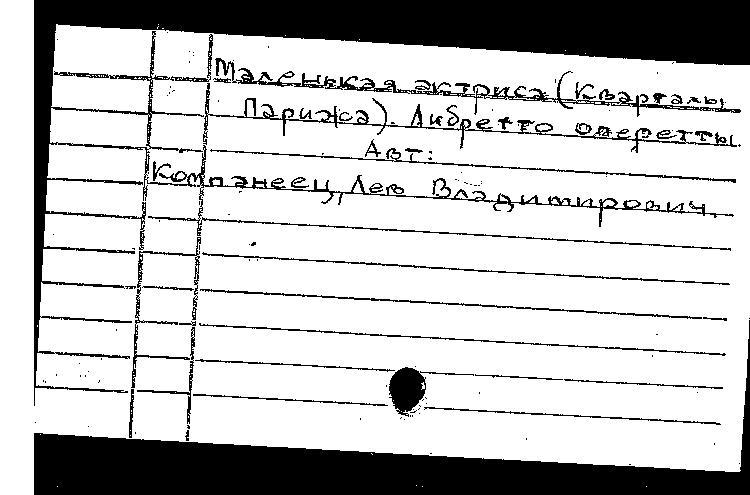 Маленькая актриса (Кварталы
Парижа). Либретто оперетты.
Авт:
Компанеец, Лев Владимирович.